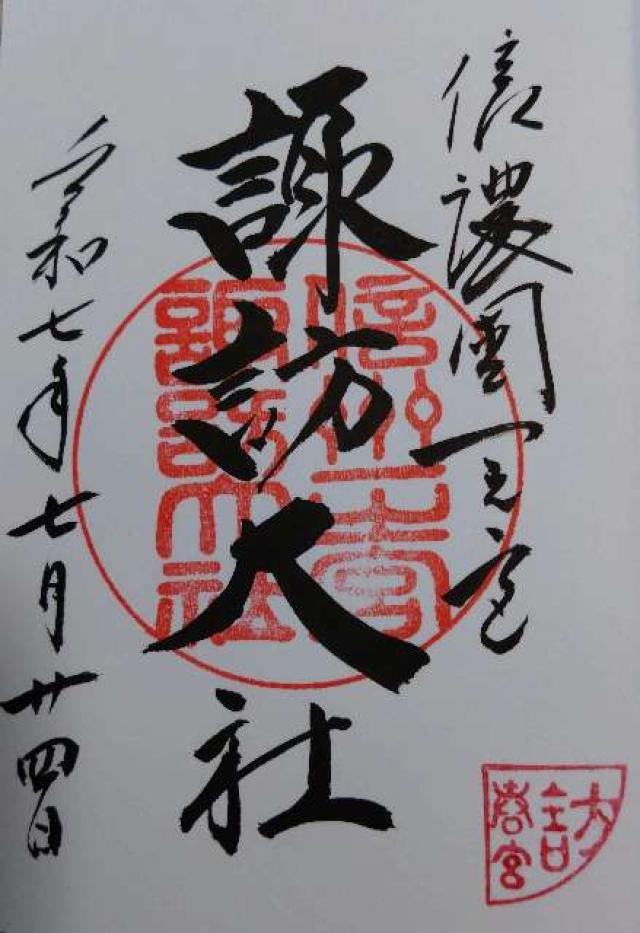 信濃國一之宮
諏訪大社
令和七年七月廿四日
信州一之宮
諏訪大社
訪
春宮